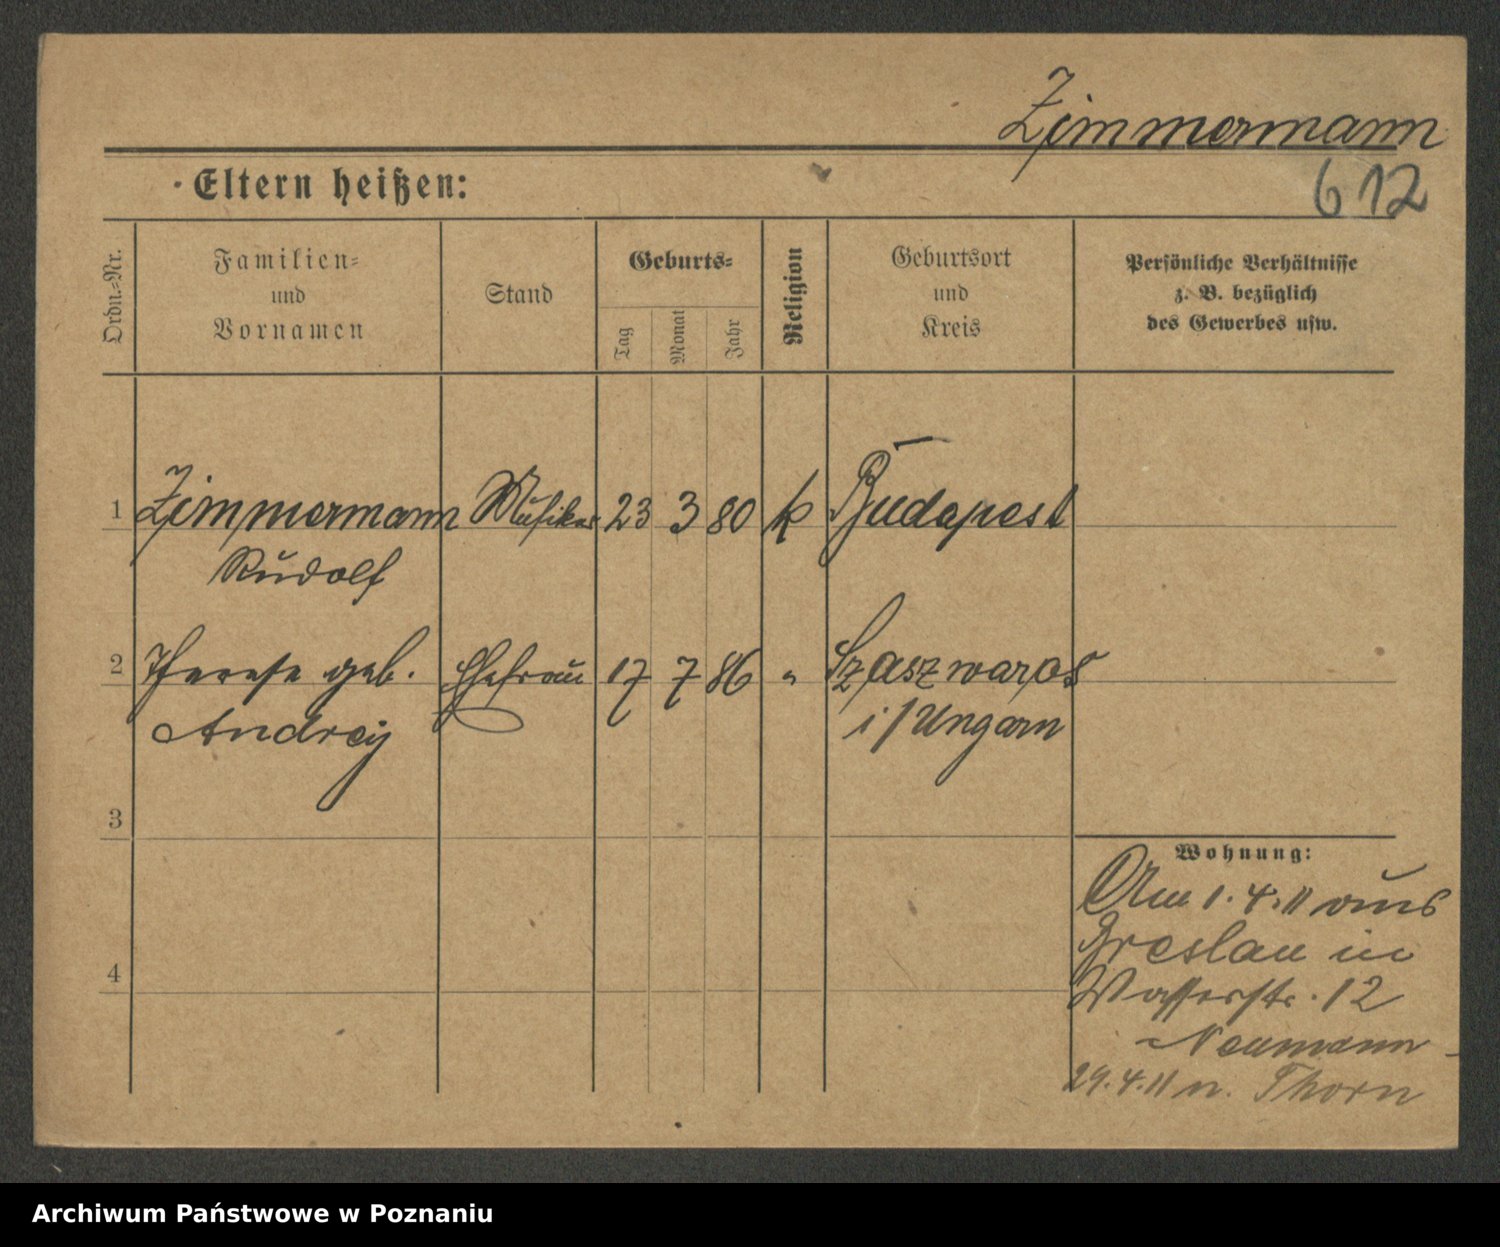 Zimmermann
612
Eltern heißen:
Ordn.-Nr.
Familien-
und
Vornamen
Stand
Geburts-
Tag
Monat
Jahr
Religion
Geburtsort
und
Kreis
Persönliche Verhältnisse
z. B. bezüglich
des Gewerbes usw.
1 Zimmermann Musiker 23 3 80 k Budapest
Rudolf
2 Therese geb. Ehefrau 17 7 86 " Szaszwaros
Andrej i/Ungarn
3
Wohnung:
Am 1.4.11 aus
Breslau in
4
Wasserstr. 12
Neumann
29.4.11 n. Thorn
Archiwum Państwowe w Poznaniu